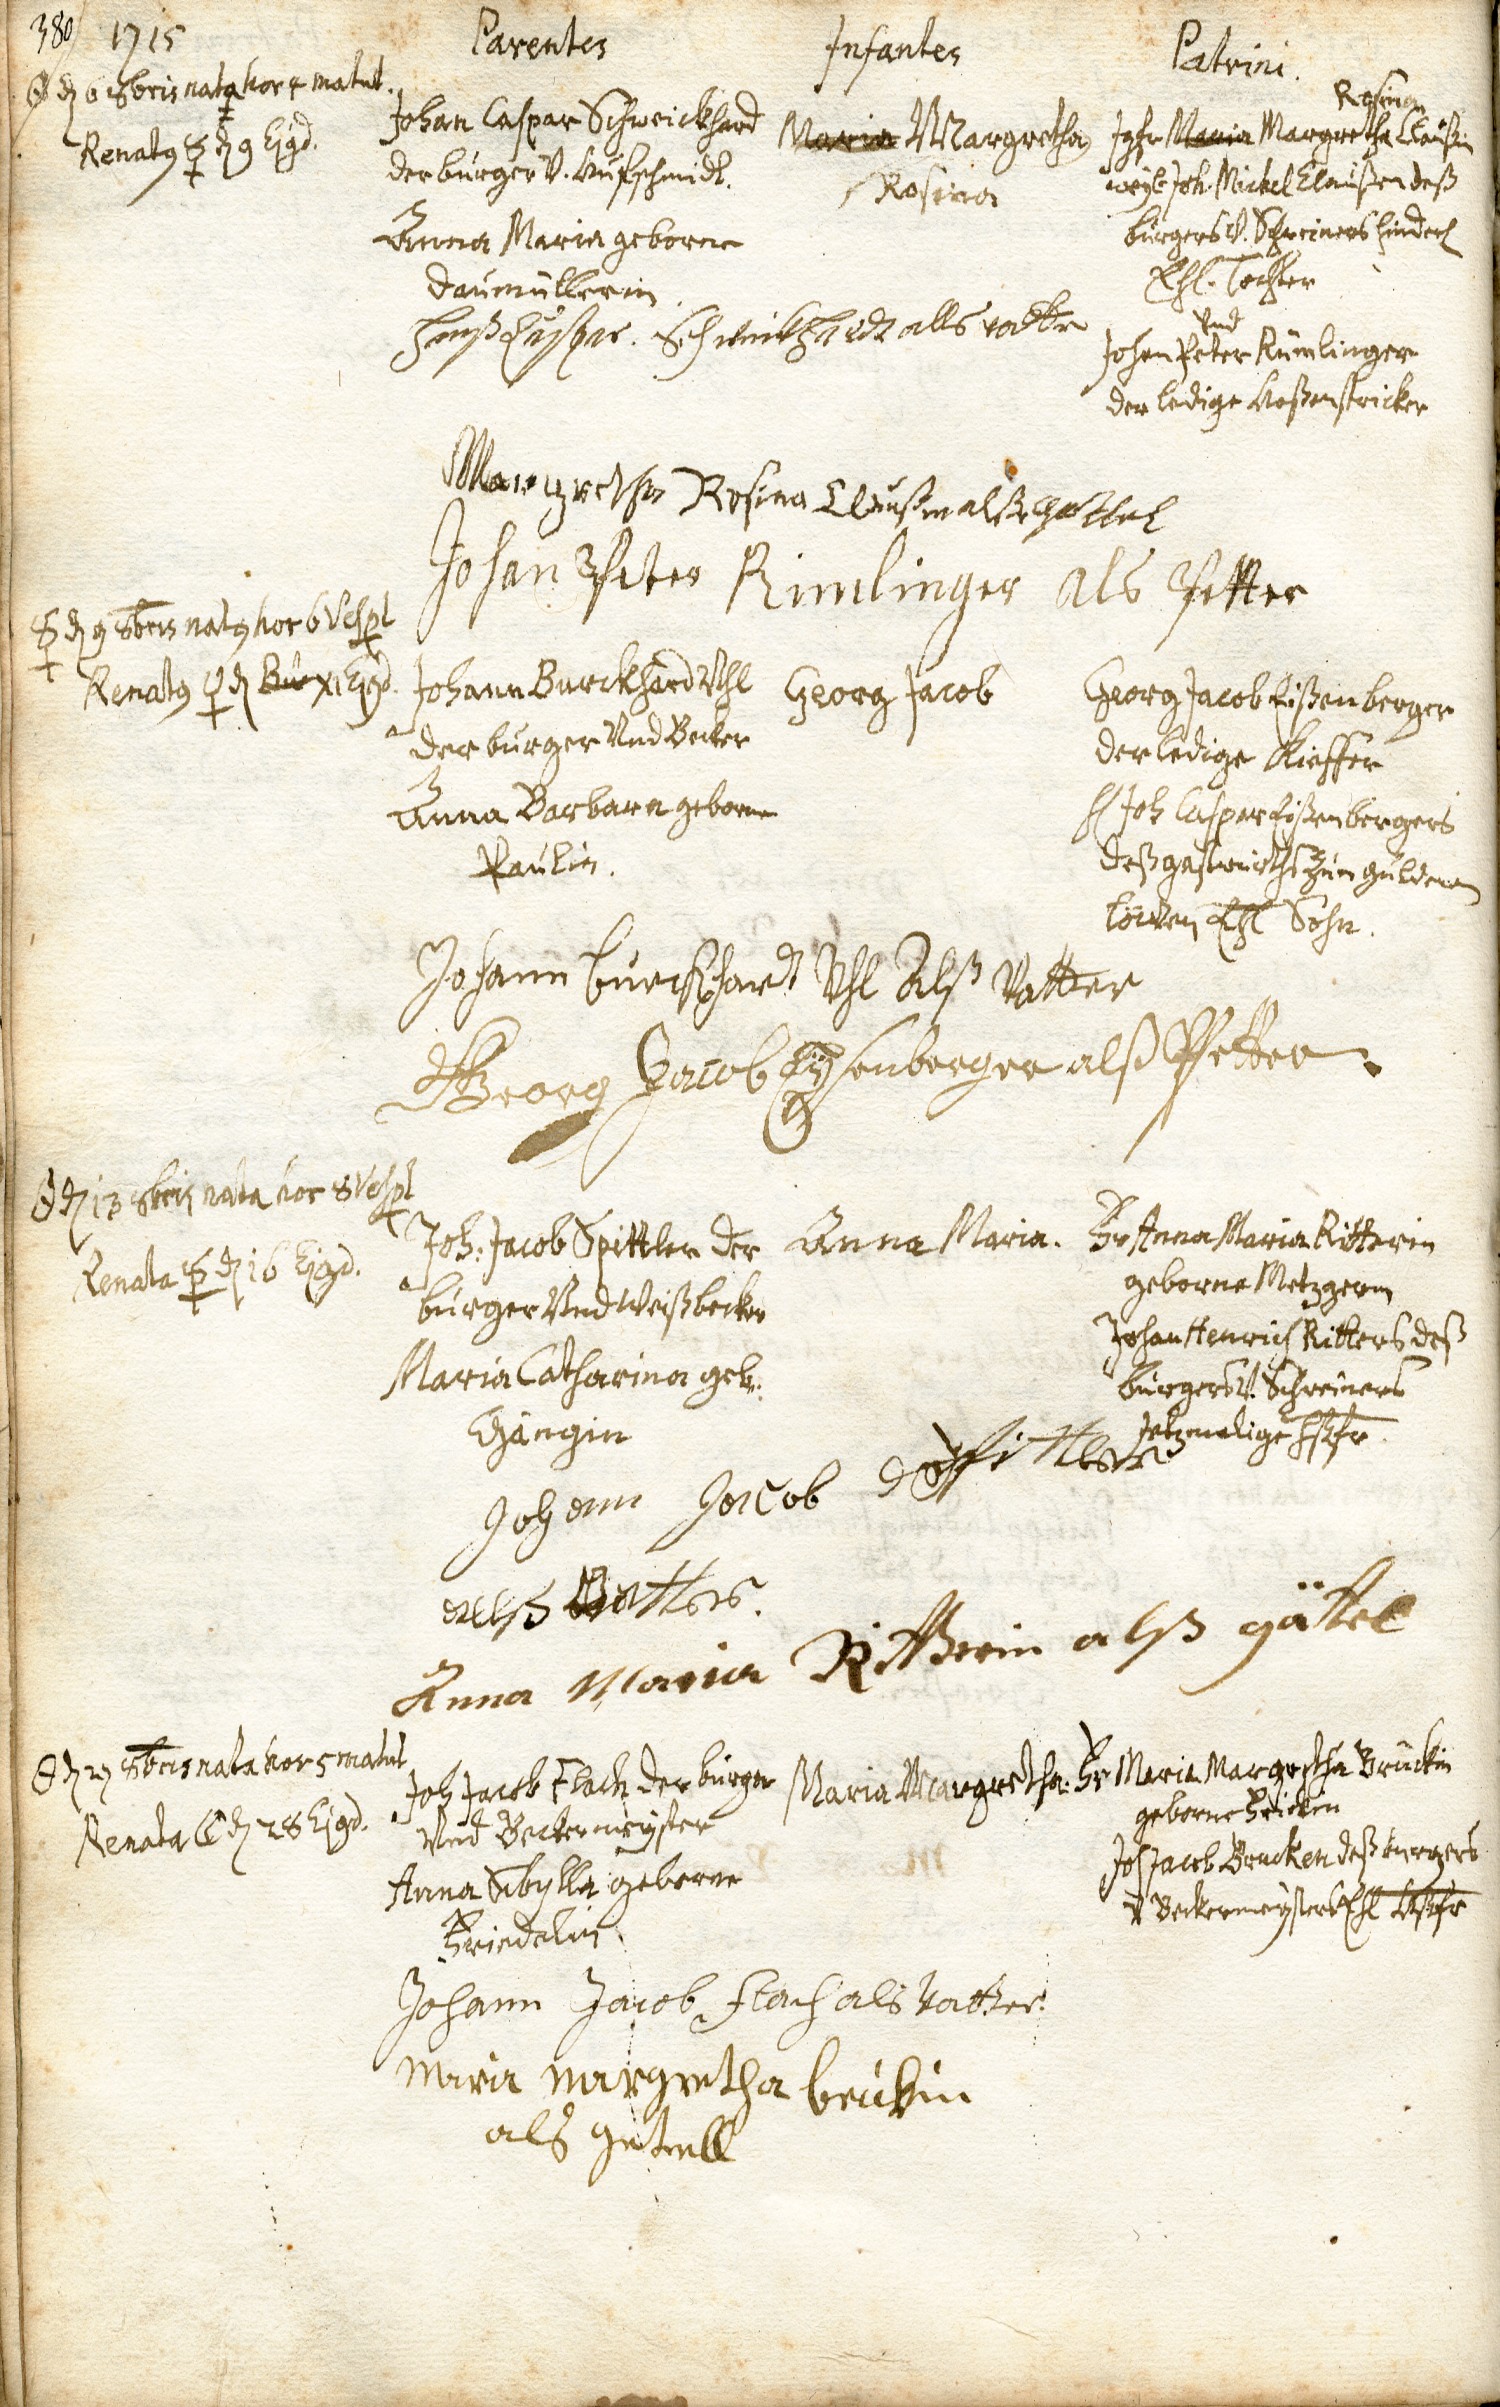 380
1715
Parentes
Infantes
Patrini.
☉ d 6 8bris nata hor 4 matut.
Renat9 ☿ d 9 Ejgd.
Johan Caspar Schweickhard
der burger V. Hufschmidt.
Anna Maria geborne
Daumüllerin.
Schweickhardt alls vatter
Maria Margretha
Rosina
Rosina
Jgfr Maria Margretha Claußin
weyl Joh. Mickel Claußen deß
burgers V. Schreiners hinderl
Ehl. Tochter
Vnd
Johan Peter Rümlinger
der ledige Hoßenstricker
Margretha Rosina Claußin alß göttel
Johan Peter Rimlinger als Petter
☿ d 9 8bris nat9 hor 6 Vesp̄t
Renat9 ♀ d XI Ejgd.
Johann Burckhard Vhl
der burger Vnd Becker
Anna Barbara geborne
Paulin.
Georg Jacob
Georg Jacob Eißenberger
der ledige Kieffer
H Joh Caspar Eißenbergers
deß gastwirths zum gülden
Löwen Ehl Sohn.
Johann burckhardt Vhl Alß Vatter
Georg Jacob Eyssenberger alß Pfetter
d 13 8bris nata hor 8 Vesp̄t
Renata ☿ d 16 Ejgd.
Joh: Jacob Spittler der
burger Vnd Weißbecker
Maria Catharina geb.
Gängin
Anna Maria.
Fr Anna Maria Ritterin
geborne Metzgerin
Johan Henrich Ritters deß
burgers V. Schreiners
Jetzmalige Hßfr
Johann Jacob Spittler
allß Vatter.
Anna Maria Ritterin alß göttel
d 27 8bris nata hor 5 matut
Renata ☾ d 28 Ejgd.
Joh Jacob Flach der burger
Vnd Beckermeyster
Anna Sibylla geborne
Friedelin.
Maria Margretha.
Fr Maria Margretha Bruckin
geborne
Joh Jacob Brucken deß burgers
V Beckermeysters Ehl Hßfr
Johann Jacob Flach als Vatter.
Maria Margretha bruckin
als gettell